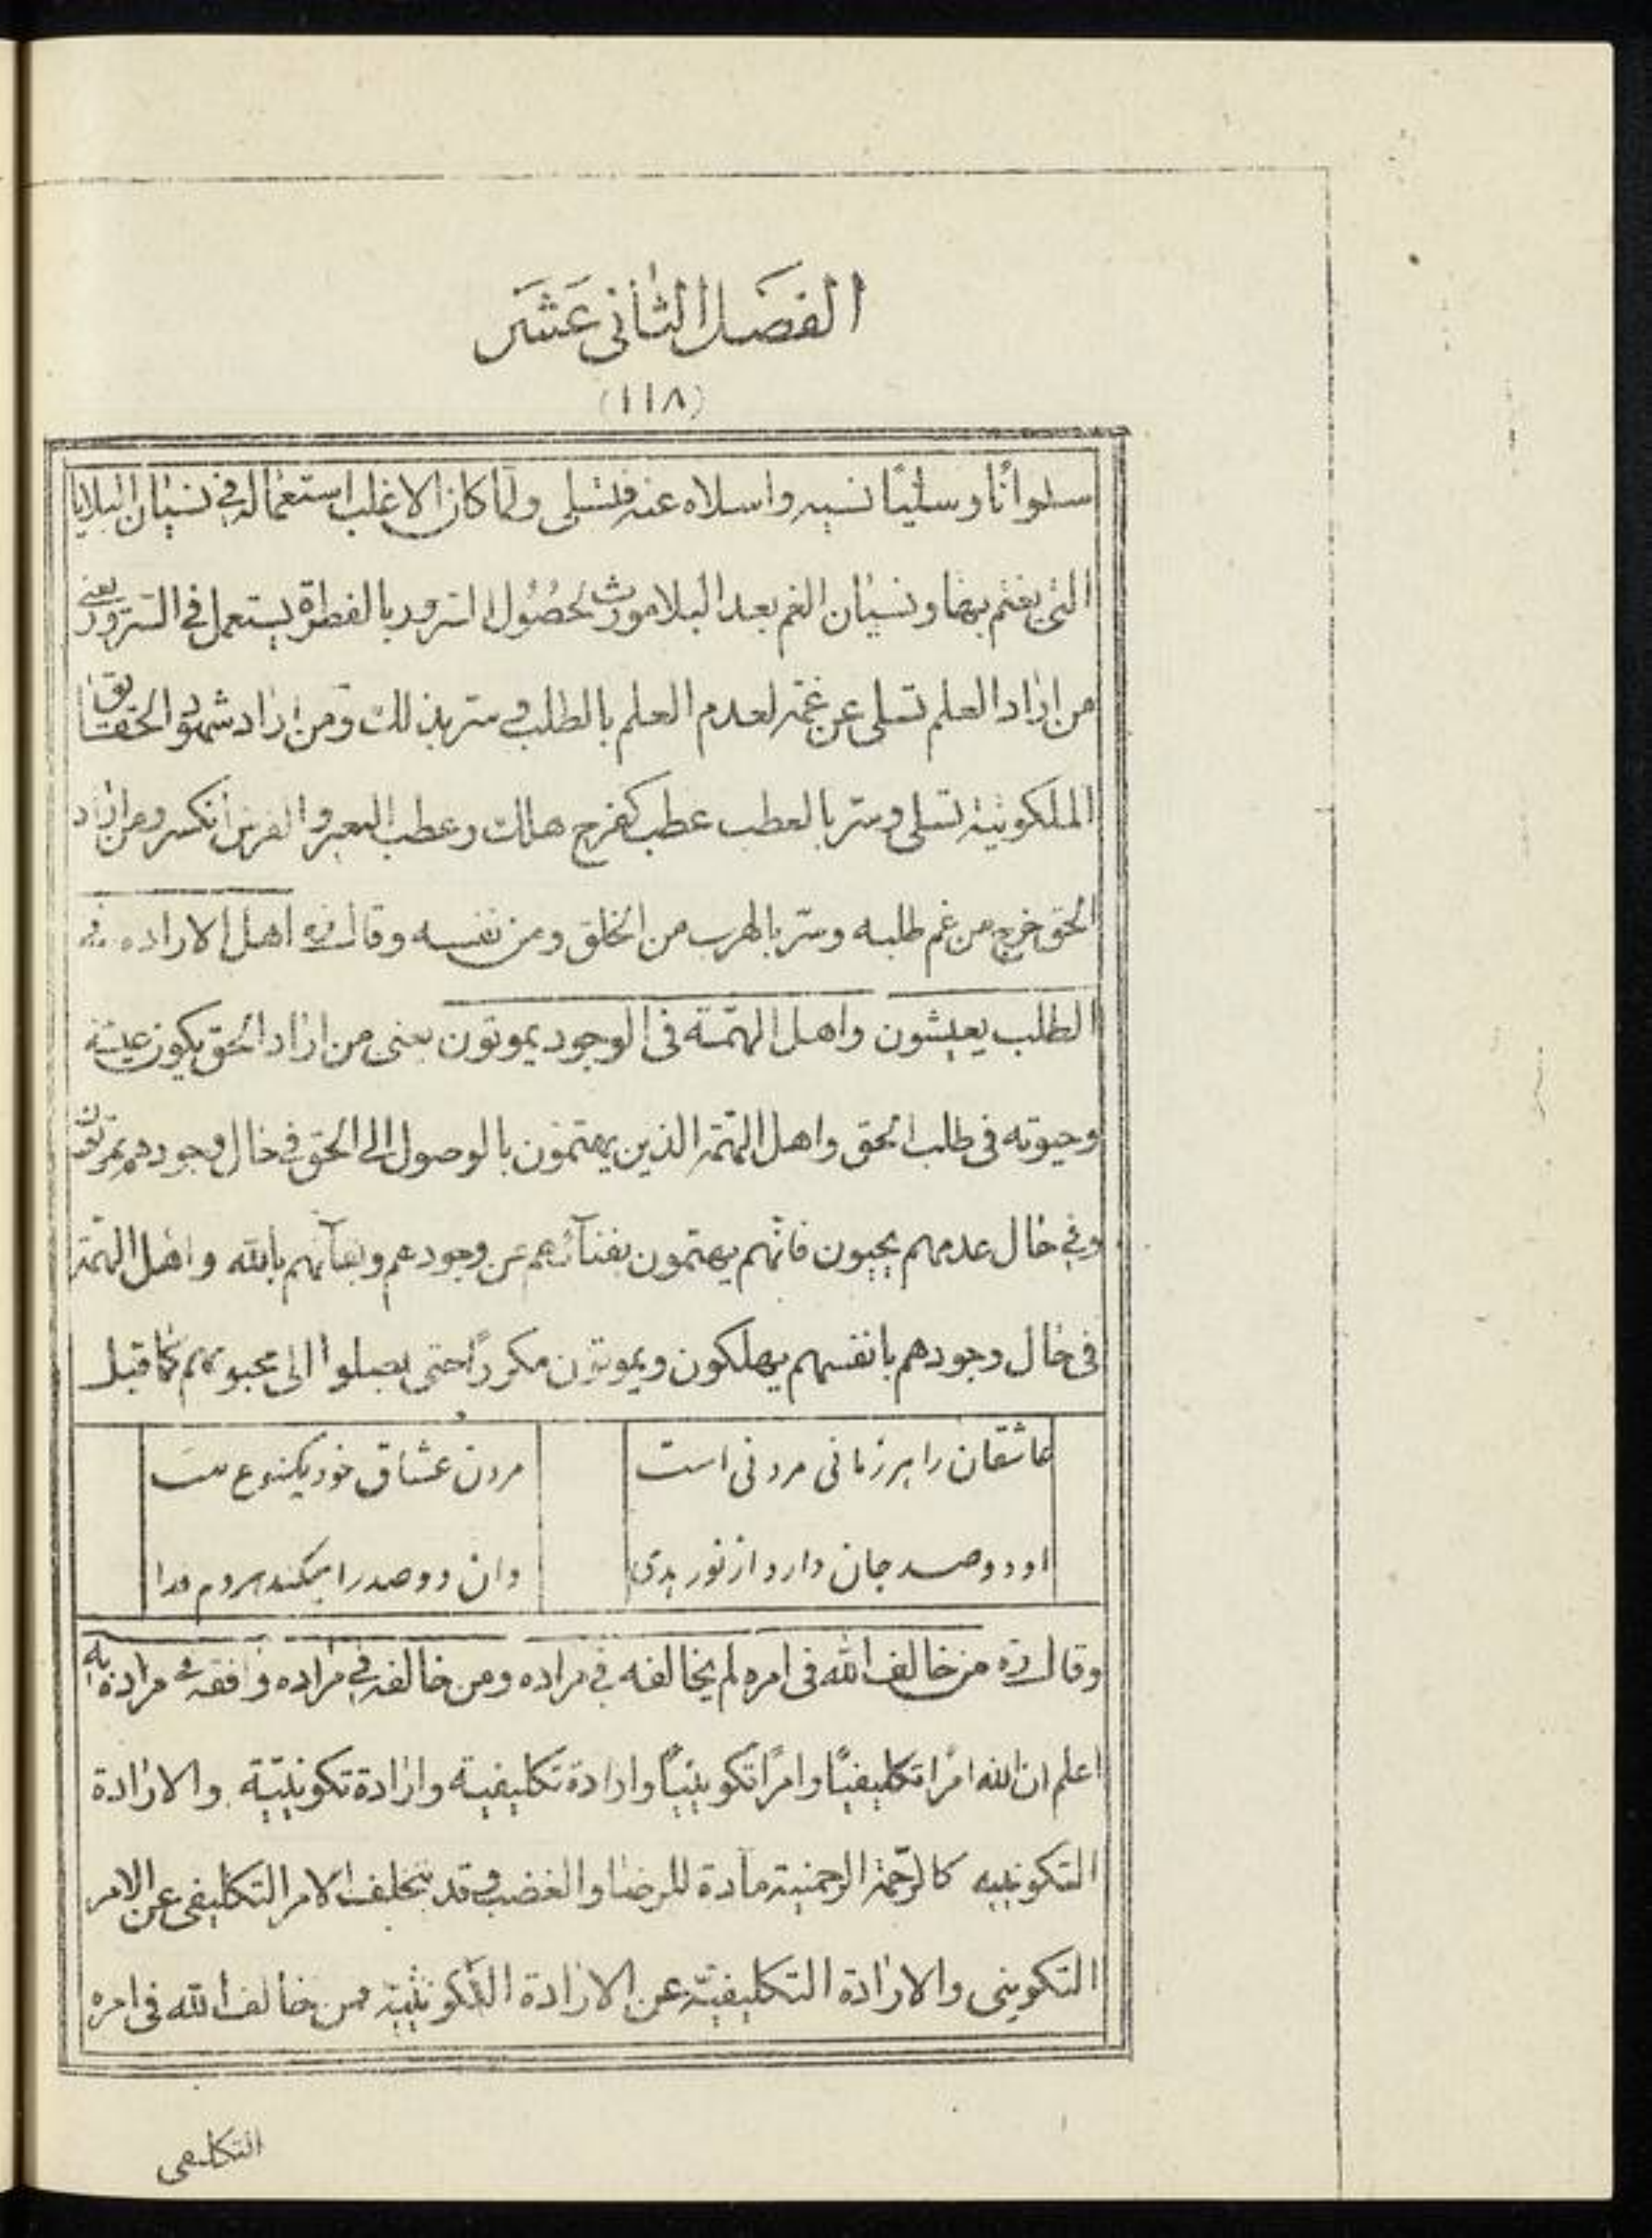 الفصل الثانی عشر
(۱۱۸)
سلوانًا و سلیًا نسیه واسلاه عنه فتسلی ولما کان الاغلب استعماله فی نسیان البلایا
التی یغتم بها و نسیان الغم بعد البلا مورث لحصول السرور بالفطرة یستعمل فی السرور یعنی
من اراد العلم تسلی عن غمّه لعدم العلم بالطلب وسرّ بذلك ومن اراد شهود الحقایق
الملکوتیة تسلی وسرّ بالعطب عطب کفرح هلك وعطب البعیر والفرس انکسر ومن اراد
الحق خرج من غم طلبه وسرّ بالهرب من الخلق ومن نفسه وقال ره اهل الاراده فی
الطلب یعیشون واهل الهمّة فی الوجود یموتون یعنی من اراد الحق یکون عیشه
وحیوته فی طلب الحق واهل الهمّة الذین یهتمّون بالوصول الی الحق فی حال وجودهم یموتون
وفی حال عدمهم یحیون فانّهم یهتمون بفنآئهم عن وجودهم وبقآئهم بالله واهل الهمّة
فی حال وجودهم بانفسهم یهلکون ویموتون مکررًا حتی یصلوا الی محبوبهم کما قیل
عاشقان را هر زمانی مردنی است مردن عشاق خود یکنوع نیست
او دو صد جان دارد از نور هدی وان دو صد را میکند هر دم فدا
وقال ره من خالف الله فی امره لم یخالفه فی مراده ومن خالفه فی مراده وافقه فی مراده به
اعلم ان لله امرًا تکلیفیًا وامرًا تکوینیًا وارادة تکلیفیة وارادة تکوینیّة والارادة
التکوینیه کالرّحمة الرحمنیة مآدة للرضا والغضب وقد یتخلف الامر التکلیفی عن الامر
التکوینی والارادة التکلیفیّة عن الارادة التکوینیّة فمن خالف الله فی امره
التکلیفی